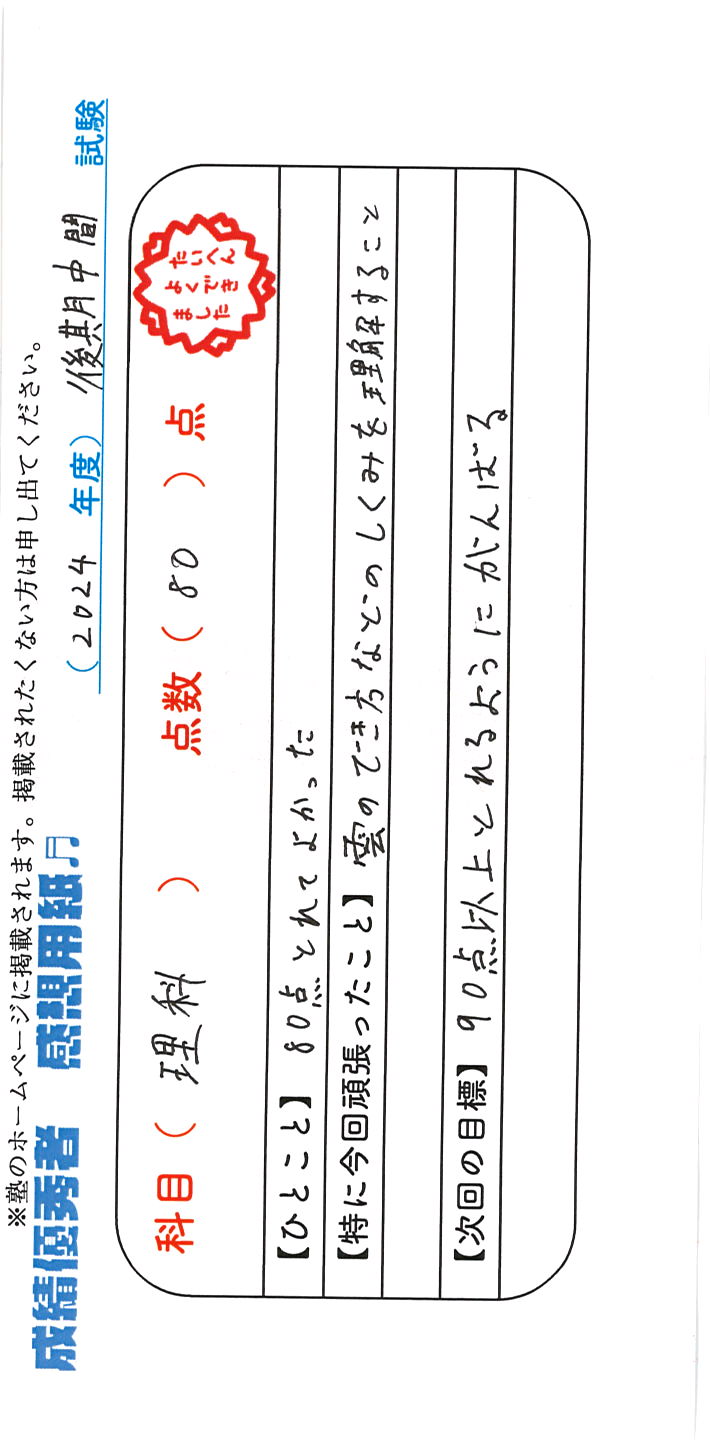 ※塾のホームページに掲載されます。掲載されたくない方は申し出てください。
成績優秀者 感想用紙♬
（2024 年度）後期中間 試験
科目（ 理科 ） 点数（ 80 ）点
たいへん
よくでき
ました
【ひとこと】80点とれてよかった
【特に今回頑張ったこと】雲のでき方などのしくみを理解すること
【次回の目標】90点以上とれるようにがんばる